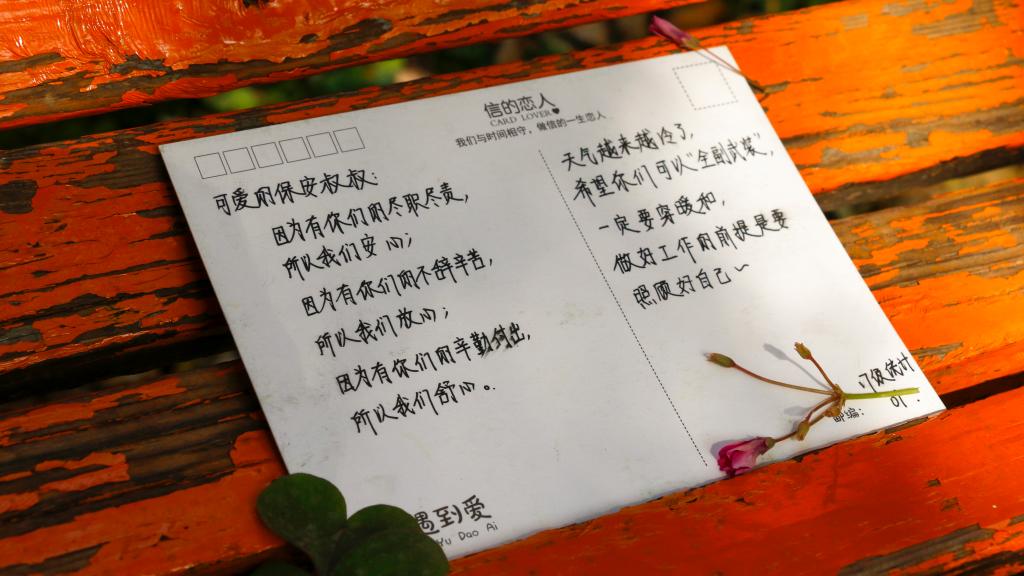 信的恋人
CARD LOVER
我们与时间相守，做信的一生恋人
可爱的保安叔叔：
因为有你们的尽职尽责，
所以我们安心；
因为有你们的不辞辛苦，
所以我们放心；
因为有你们的辛勤付出，
所以我们舒心。
天气越来越冷了，
希望你们可以“全副武装”，
一定要穿暖和，
做好工作的前提是要
照顾好自己～
邮编：
遇到爱
Yu Dao Ai